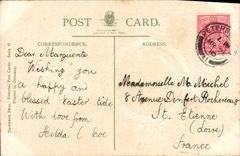 POST CARD.
CORRESPONDENCE.
ADDRESS.
Dear Marguerite
Wishing you
a happy and
blessed Easter tide
With love from
Hilda Coe
Mademoiselle M. Mechel
8 Avenue Denfert Rochereau
St. Etienne
(Loire)
France
PETERS